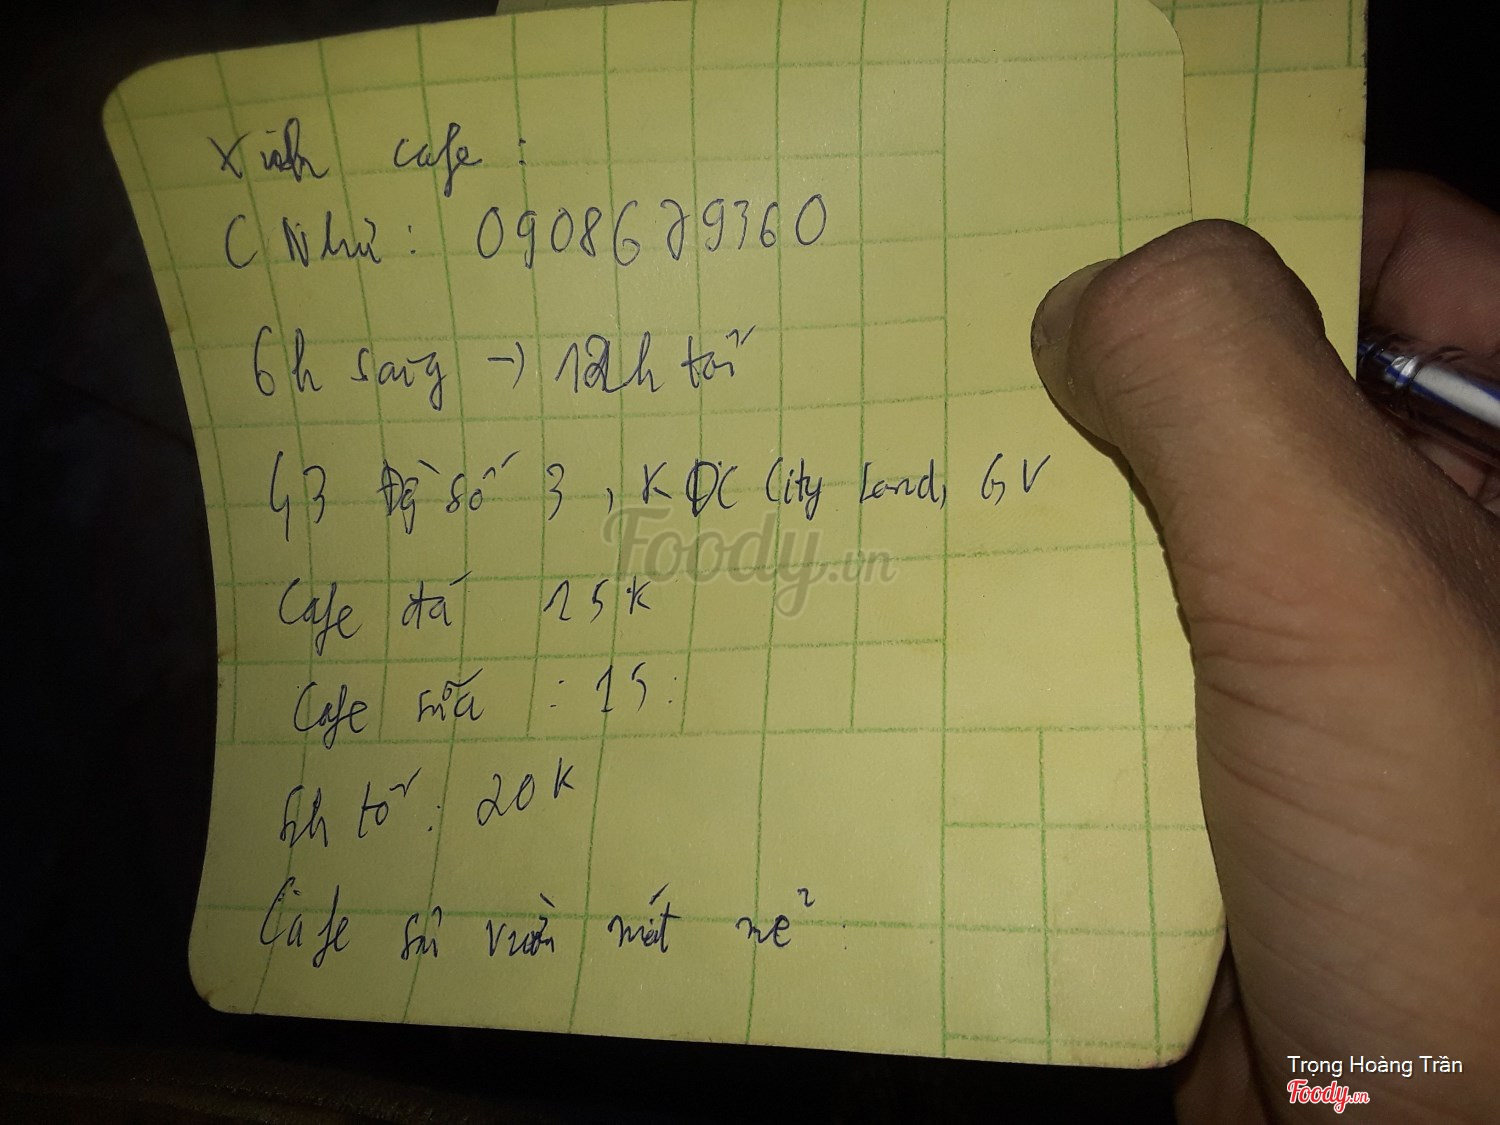 Xinh cafe :
C Như : 0908679360
6h sáng → 12h tối
43 Đg số 3 , KDC City Land, GV
Cafe đá 15k
Cafe sữa : 15 :
Sinh tố : 20k
Cafe sân vườn mát mẻ
Foody.vn
Trọng Hoàng Trần
Foody.vn